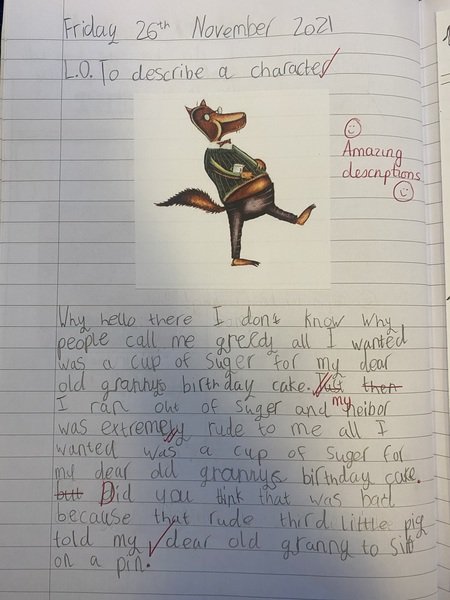 Friday 26th November 2021
L.O. To describe a character
Amazing
descriptions
Why hello there I don't know why
people call me greedy all I wanted
was a cup of suger for my dear
old grannys birthday cake. Just then
I ran out of suger and my neibor
was extremely rude to me all I
wanted was a cup of suger for
my dear old grannys birthday cake.
but Did you think that was bad
because that rude third little pig
told my dear old granny to sit
on a pin.